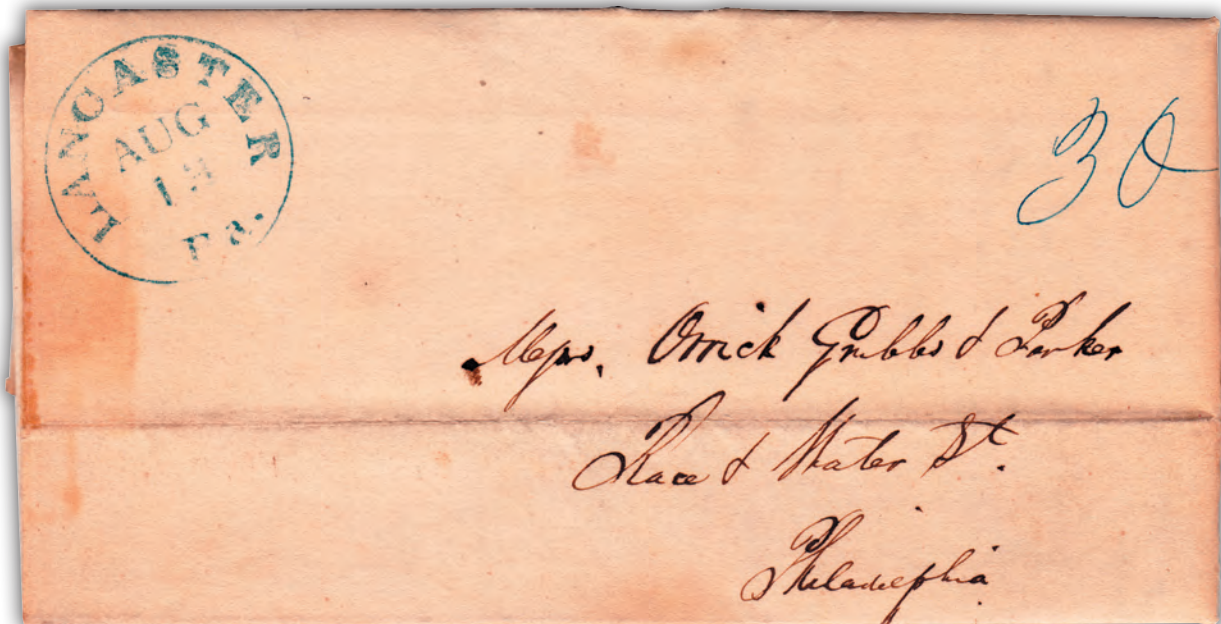 LANCASTER
AUG
13
Pa.
30
Messrs. Orrick Grubbs & Parker
Race & Water St.
Philadelphia